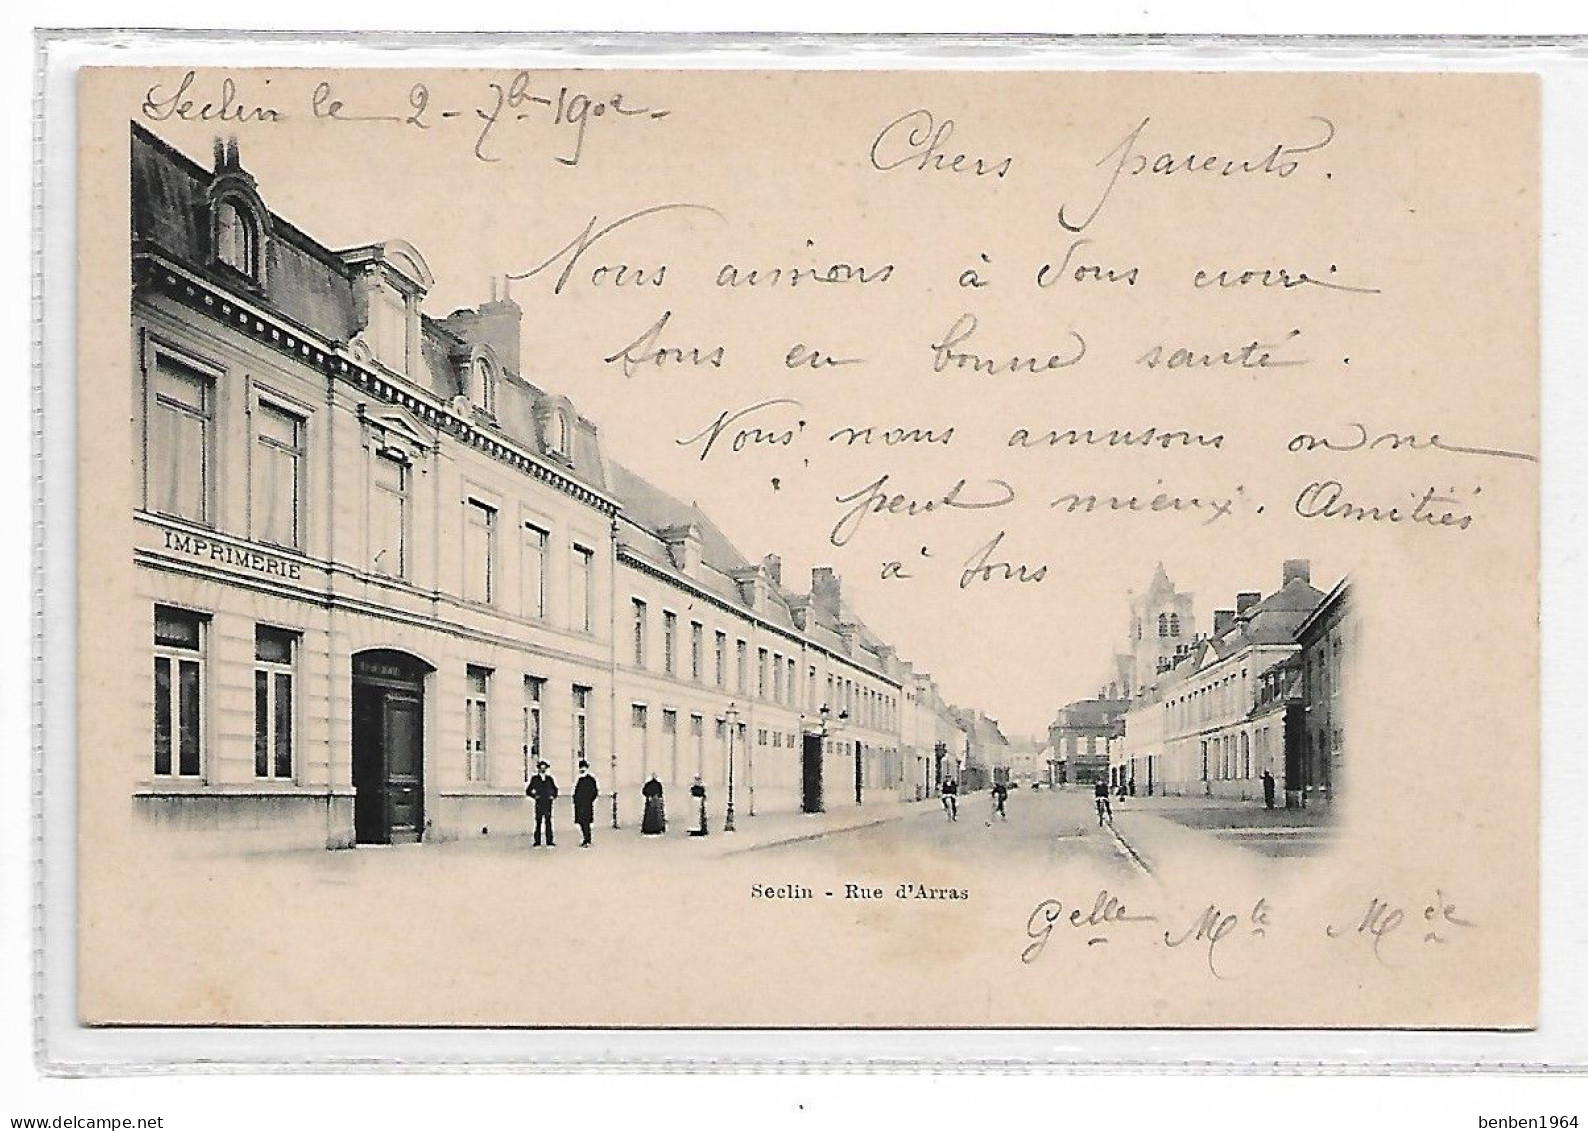 Seclin le 2 - 7b 1902 -
Chers parents.
Nous aimons à vous croire
tous en bonne santé.
Nous nous amusons on ne
peut mieux. Amitiés
à tous
IMPRIMERIE
Seclin - Rue d'Arras
Gelle Mte Mie
benben1964